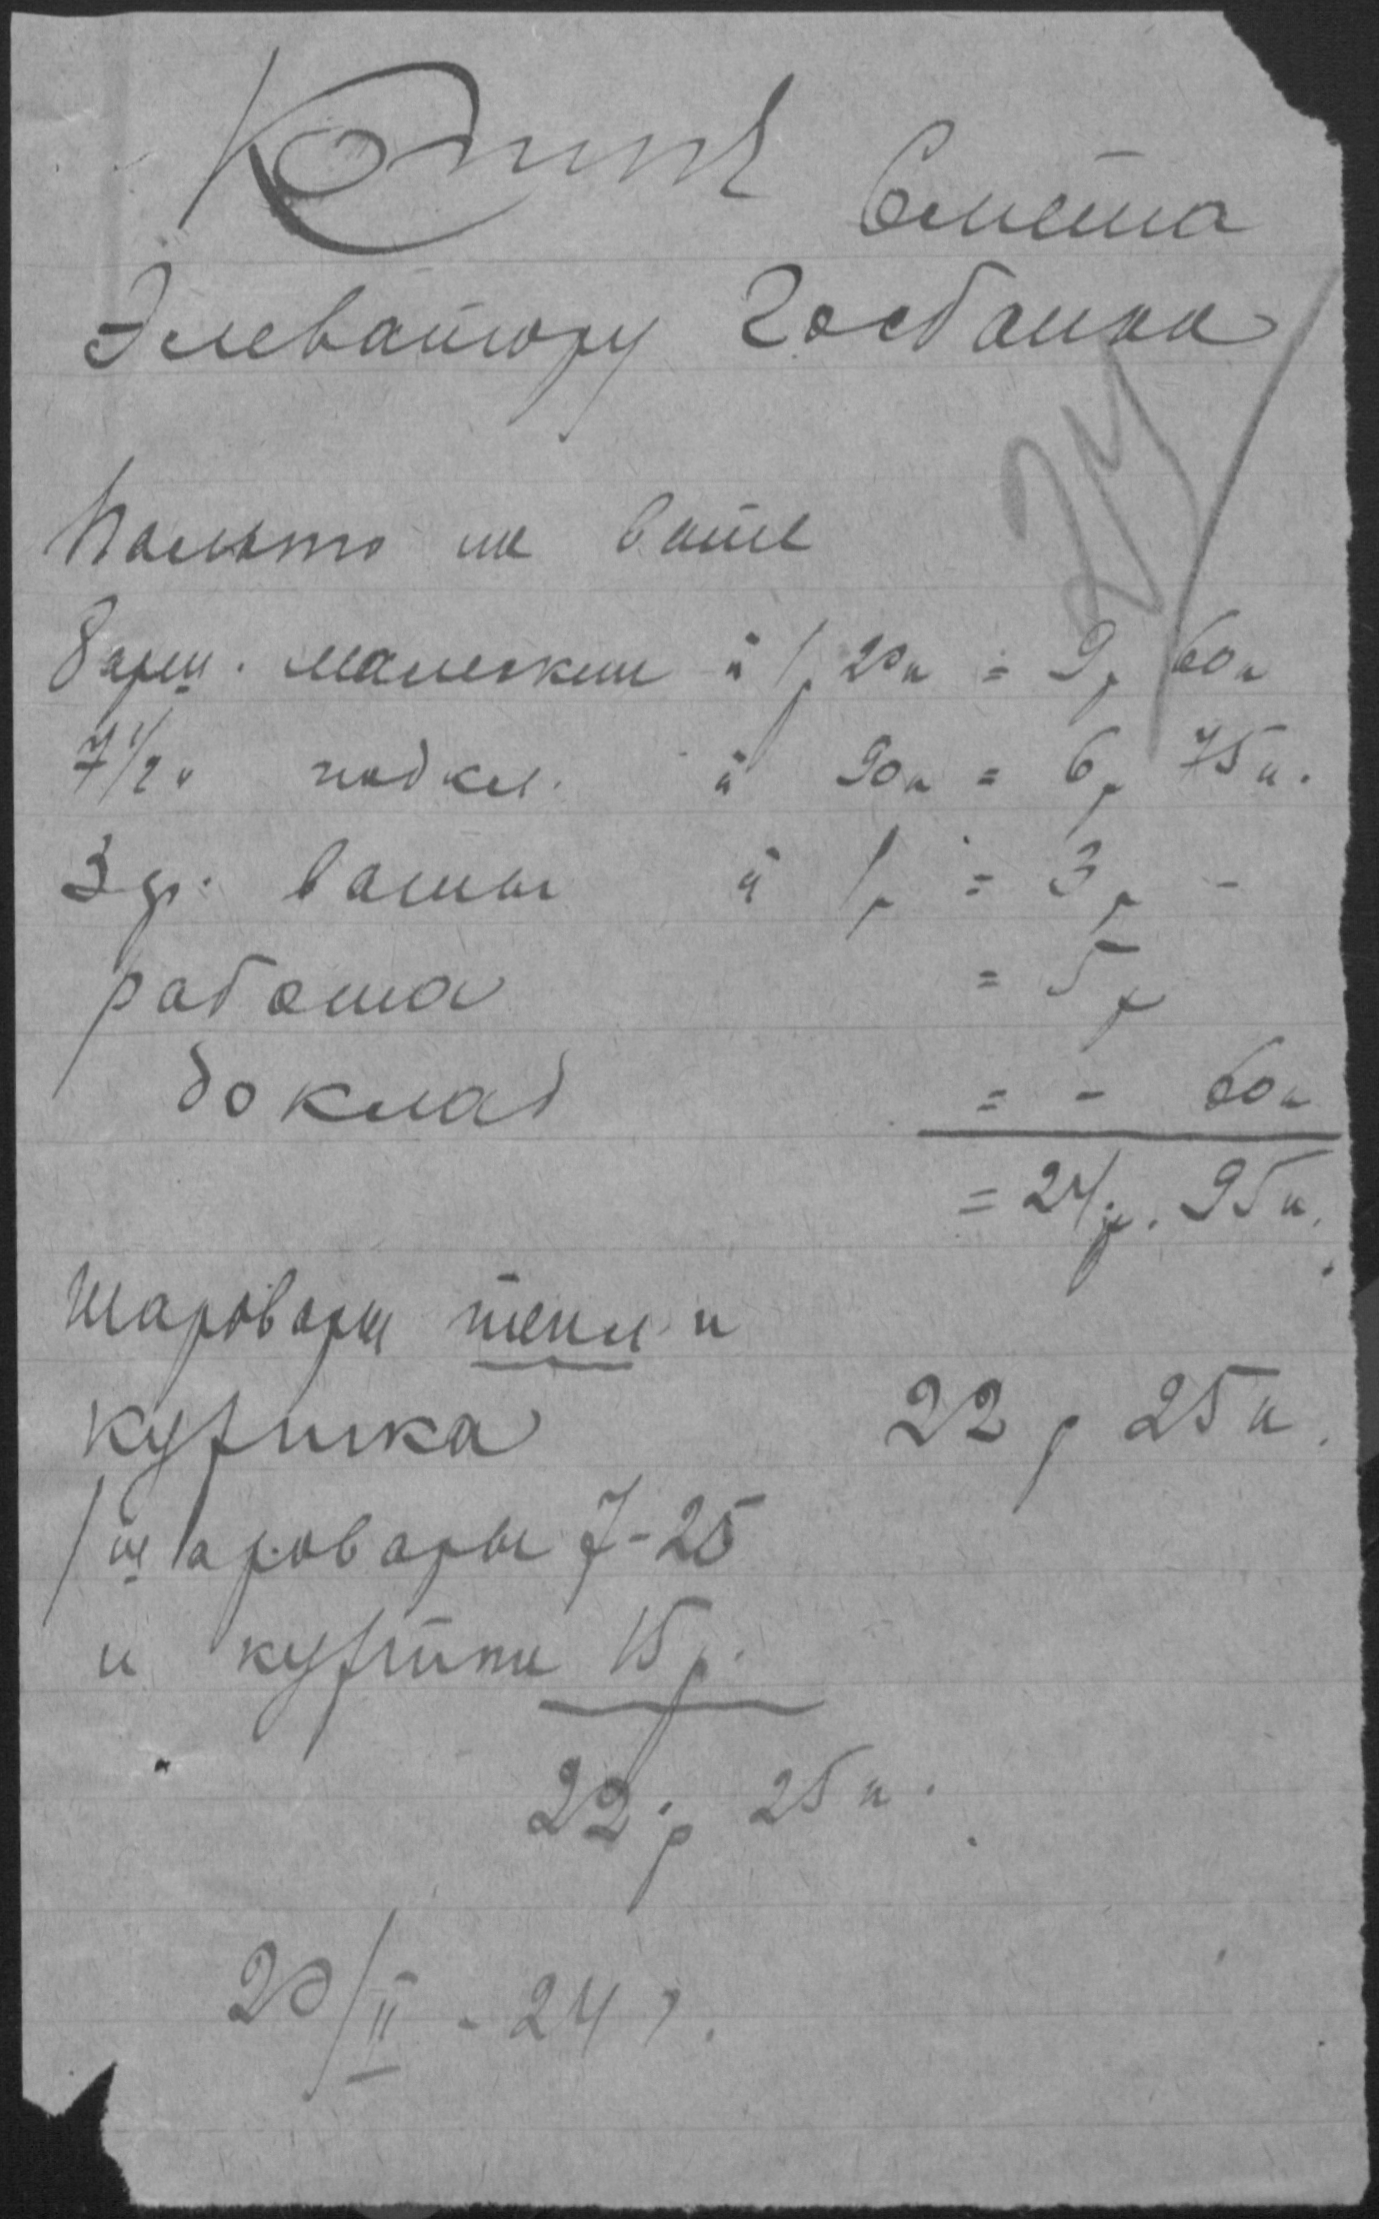 Копия
Смета
Элеватору Госбанка
24
Пальто на вате
8 арш. малескин à 1р 20к = 9р 60к
7 1/2 " подкл. à 90к = 6р 75к.
3 ф. ваты à 1р = 3р -
работа = 5р
доклад = - 60к
= 24р. 95к.
Шаровары тепл и
куртка 22р 25к.
/шаровары 7-25
и куртки 15р.
22р 25к.
20/II - 24 г.